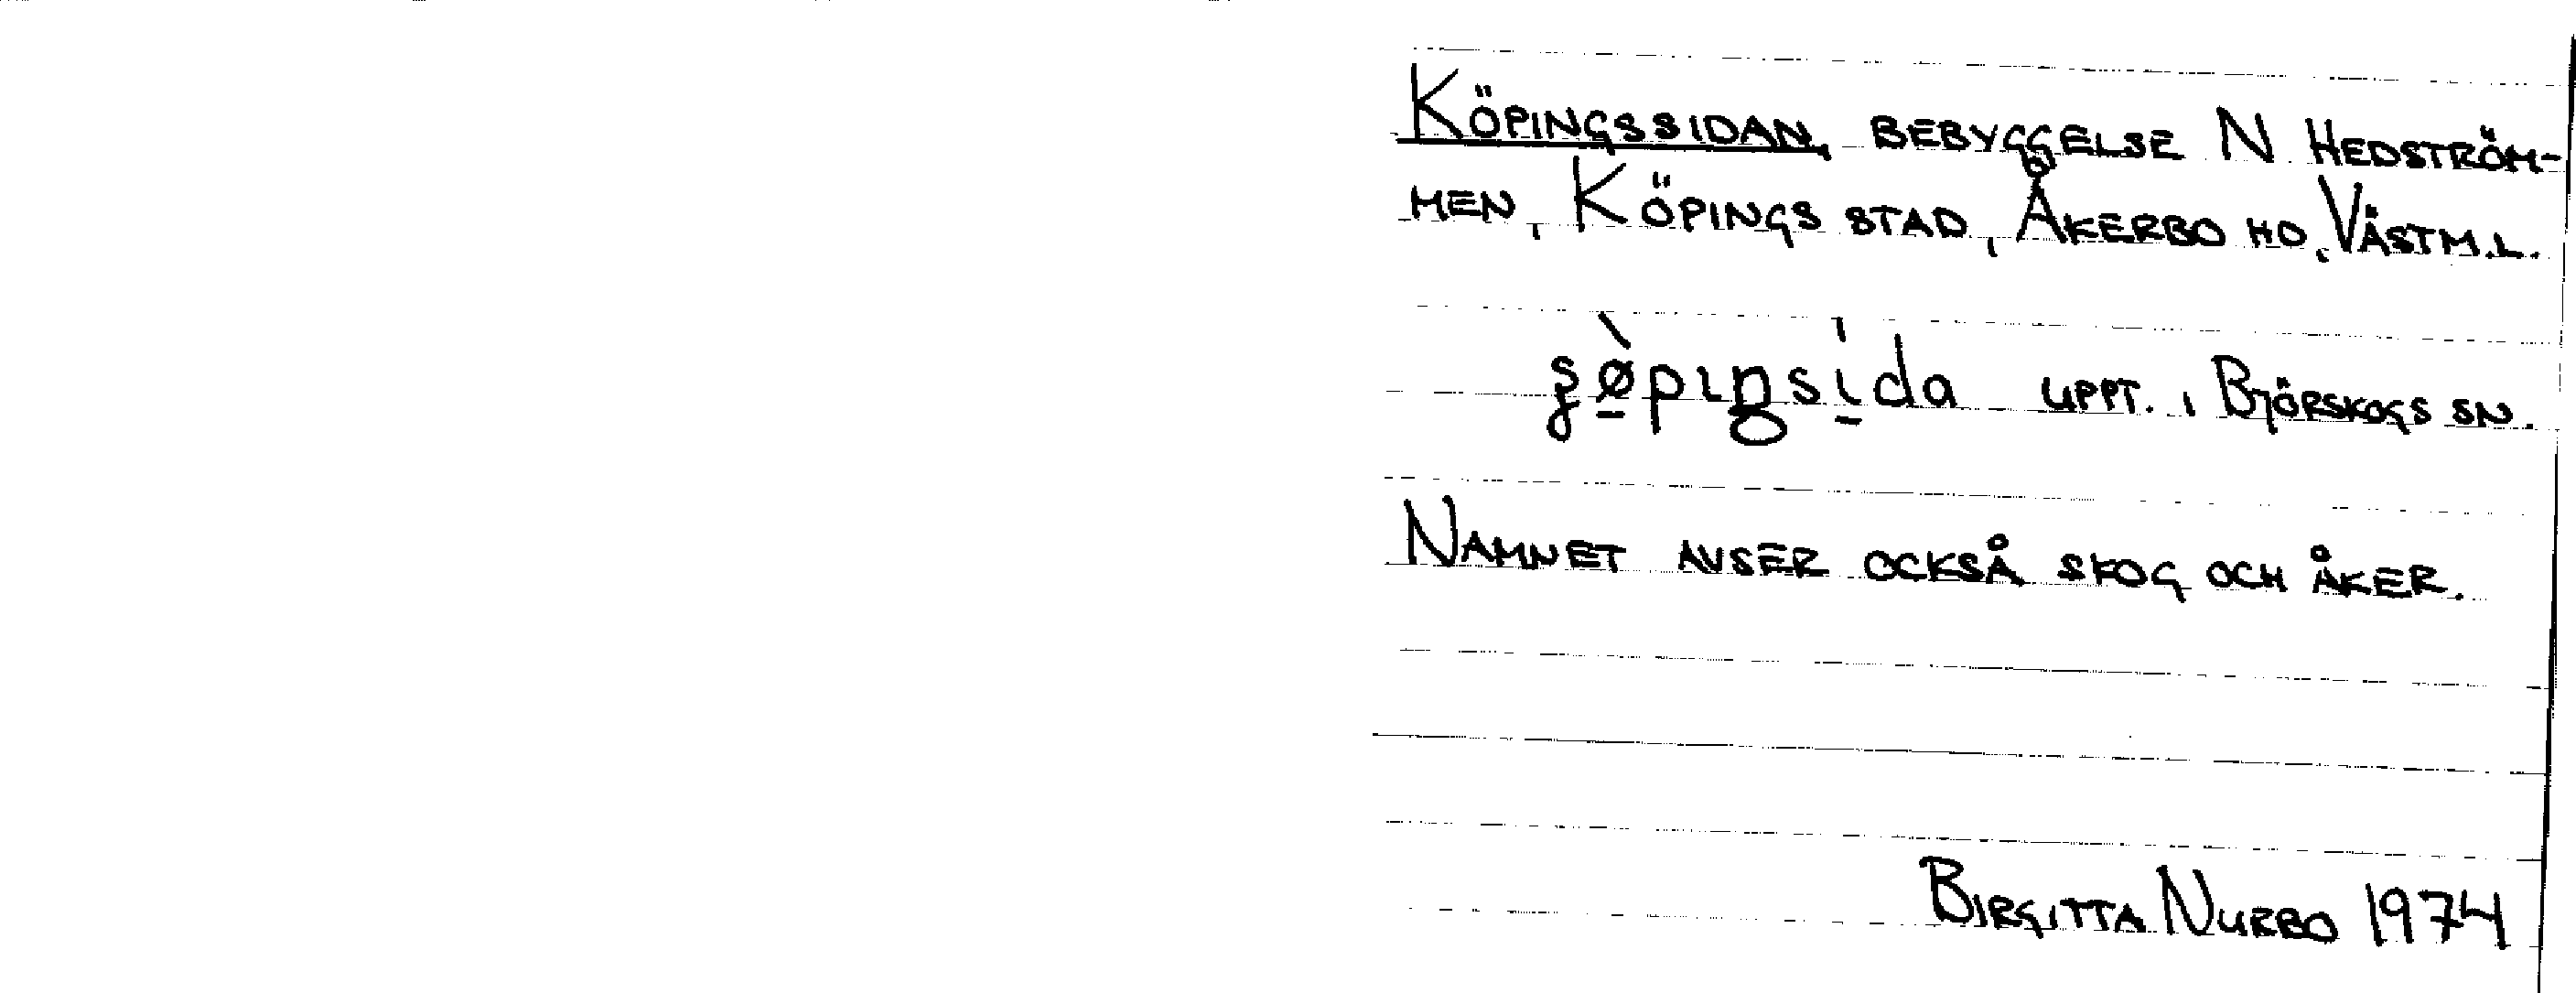 KÖPINGSSIDAN, BEBYGGELSE N HEDSTRÖM-
MEN, KÖPINGS STAD, ÅKERBO HD, VÄSTM.L.
UPPT. I BJÖRSKOGS SN.
NAMNET AVSER OCKSÅ SKOG OCH ÅKER.
BIRGITTA NURBO 1974